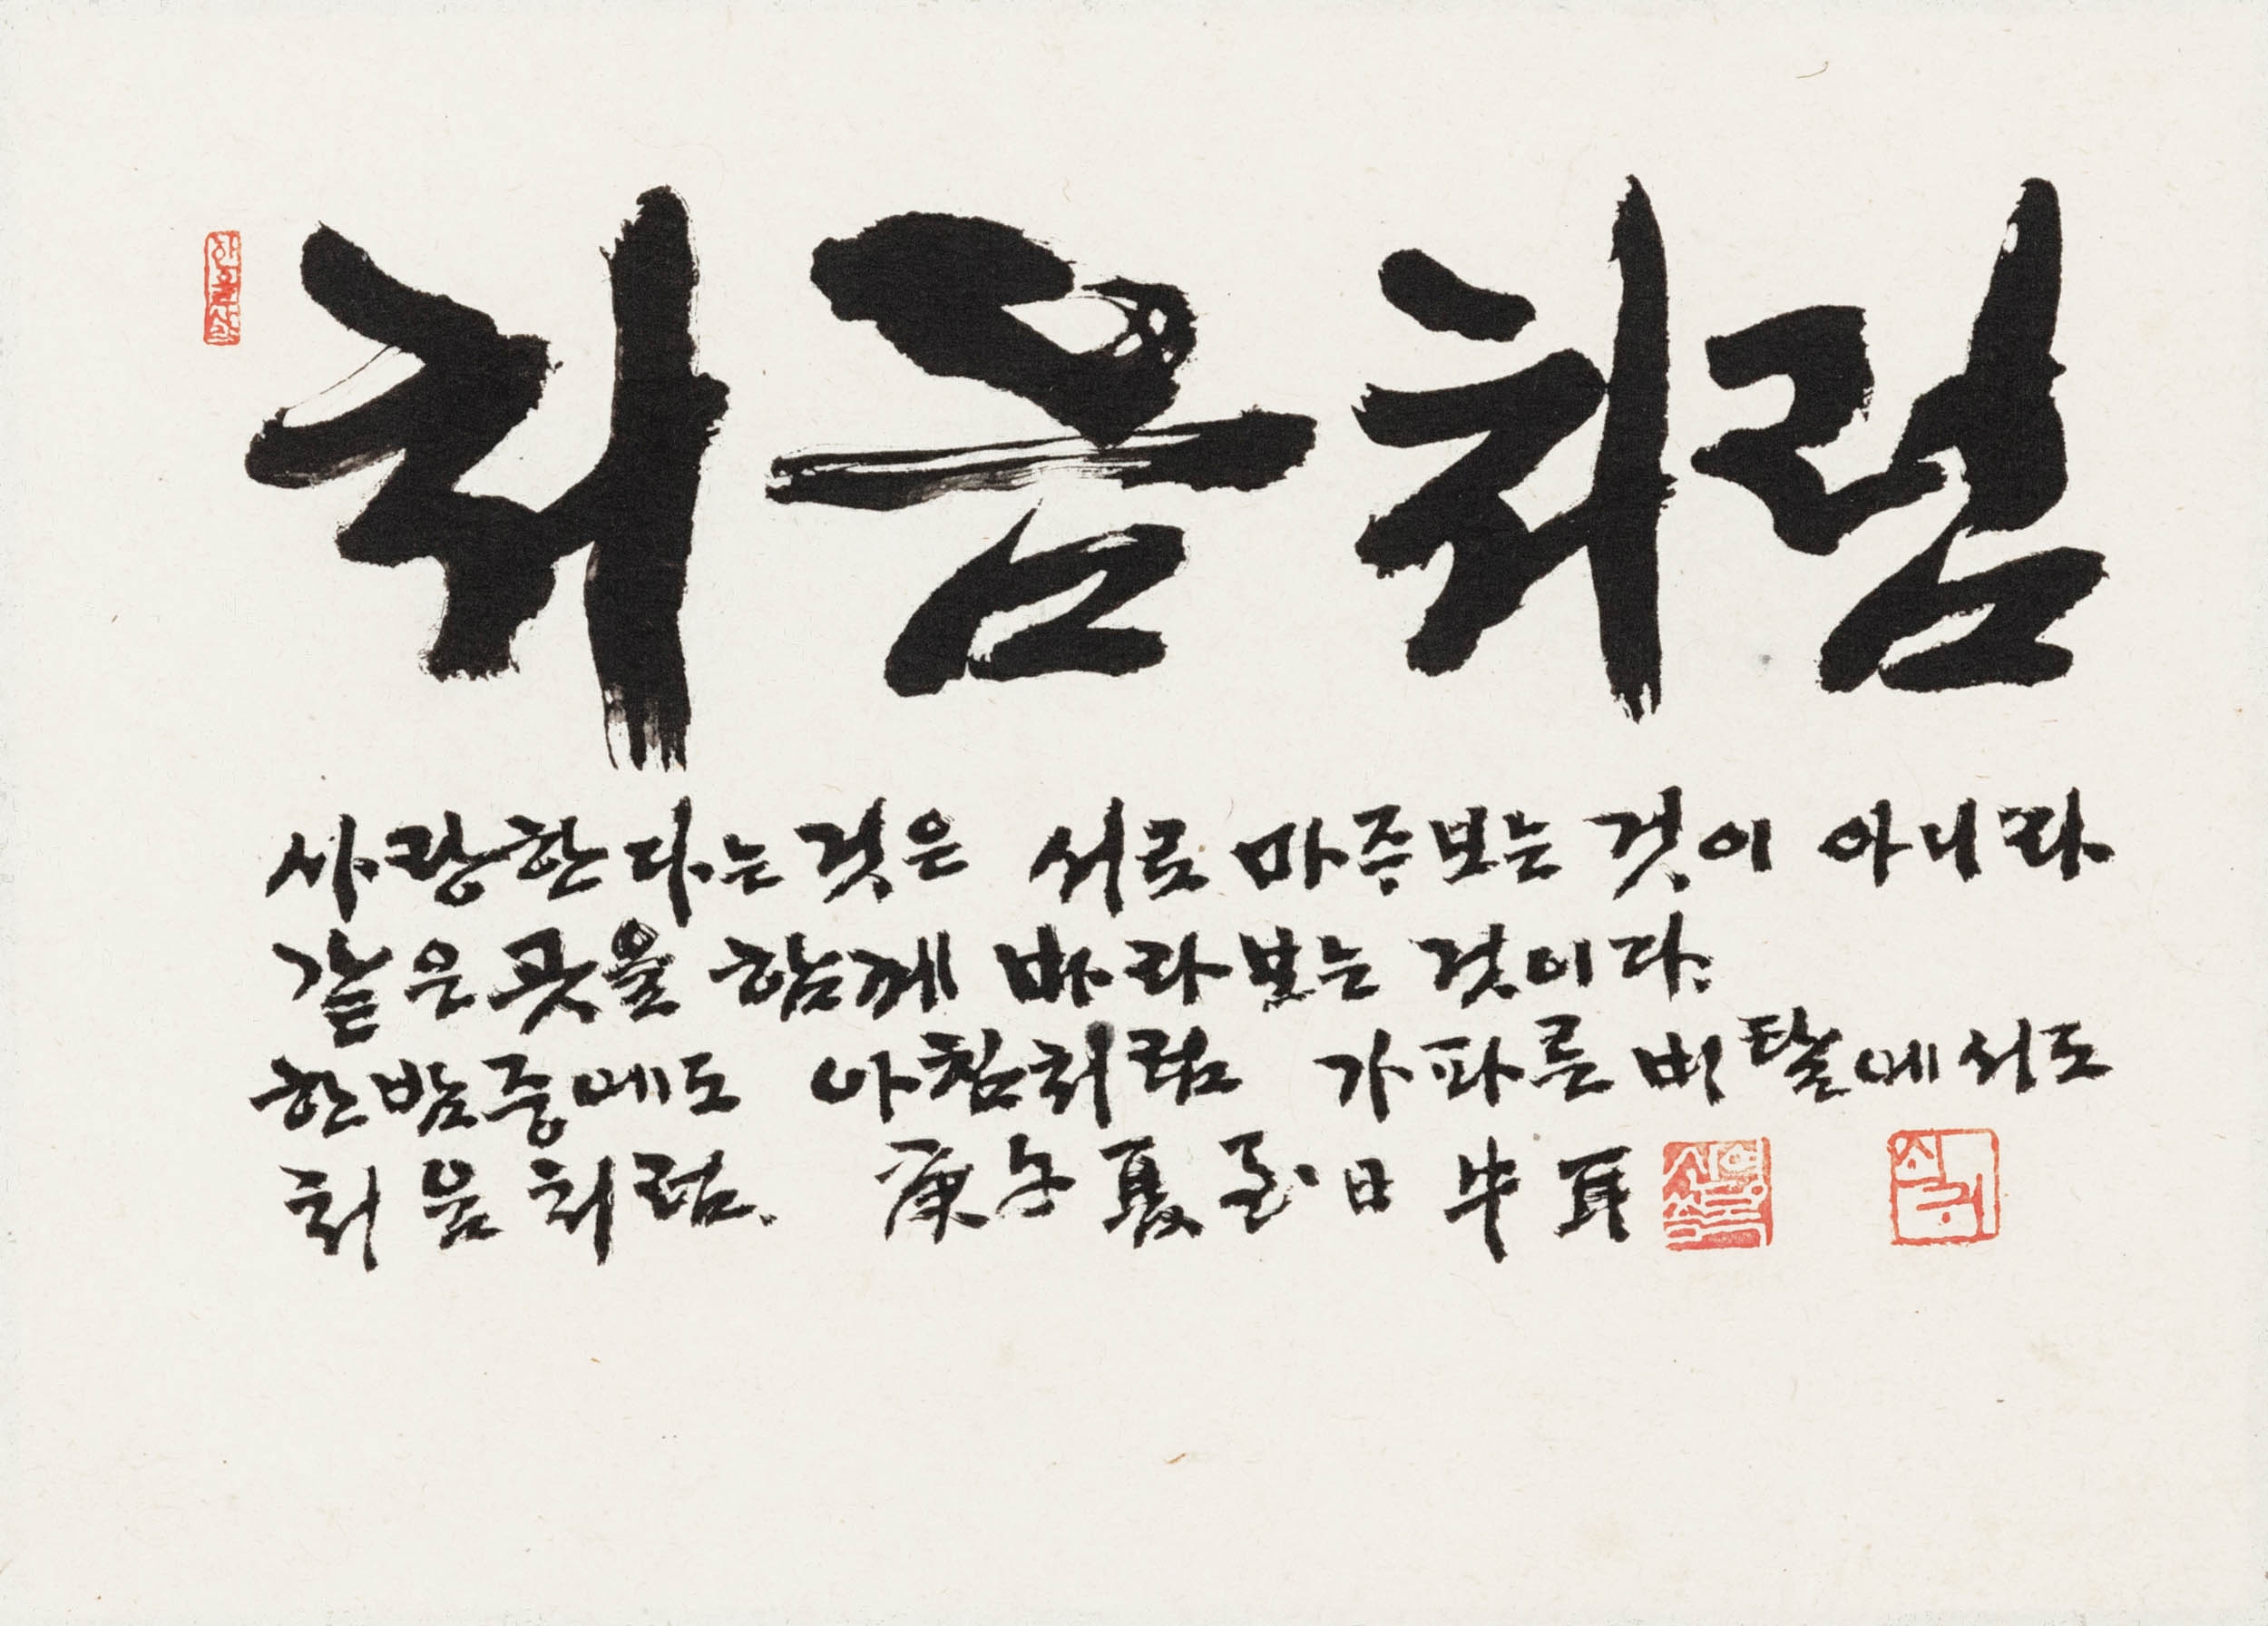 처음처럼
사랑한다는것은 서로 마주보는 것이 아니라
같은곳을 함께 바라보는 것이다.
한밤중에도 아침처럼 가파른 비탈에서도
처음처럼. 庚午夏至日 牛耳